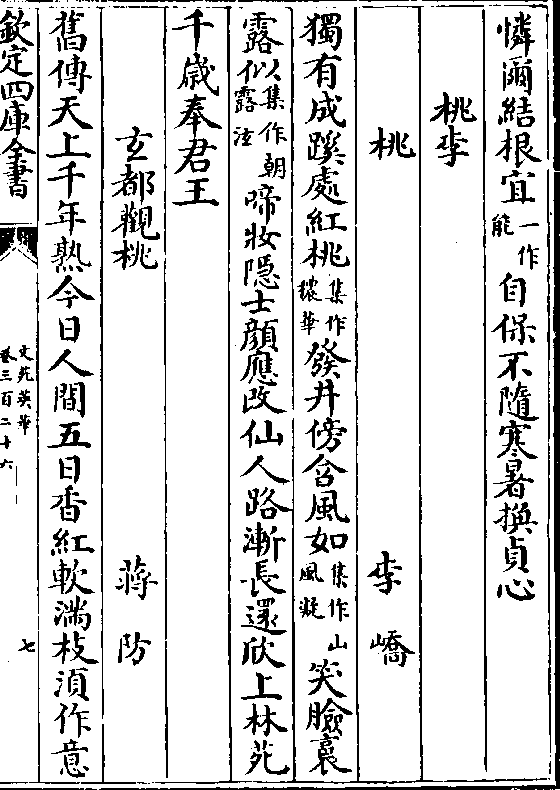 憐爾結根宜一作能自保不隨寒暑換貞心
桃李
桃 李嶠
獨有成蹊處紅桃集作穠華發井傍含風如集作山風凝笑臉裛
露似集作朝露泫啼妝隱士顔應改仙人路漸長還欣上林苑
千歲奉君王
玄都觀桃 蔣防
舊傳天上千年熟今日人間五日香紅軟滿枝湏作意
欽定四庫全書
文苑英華
卷三百二十六
七